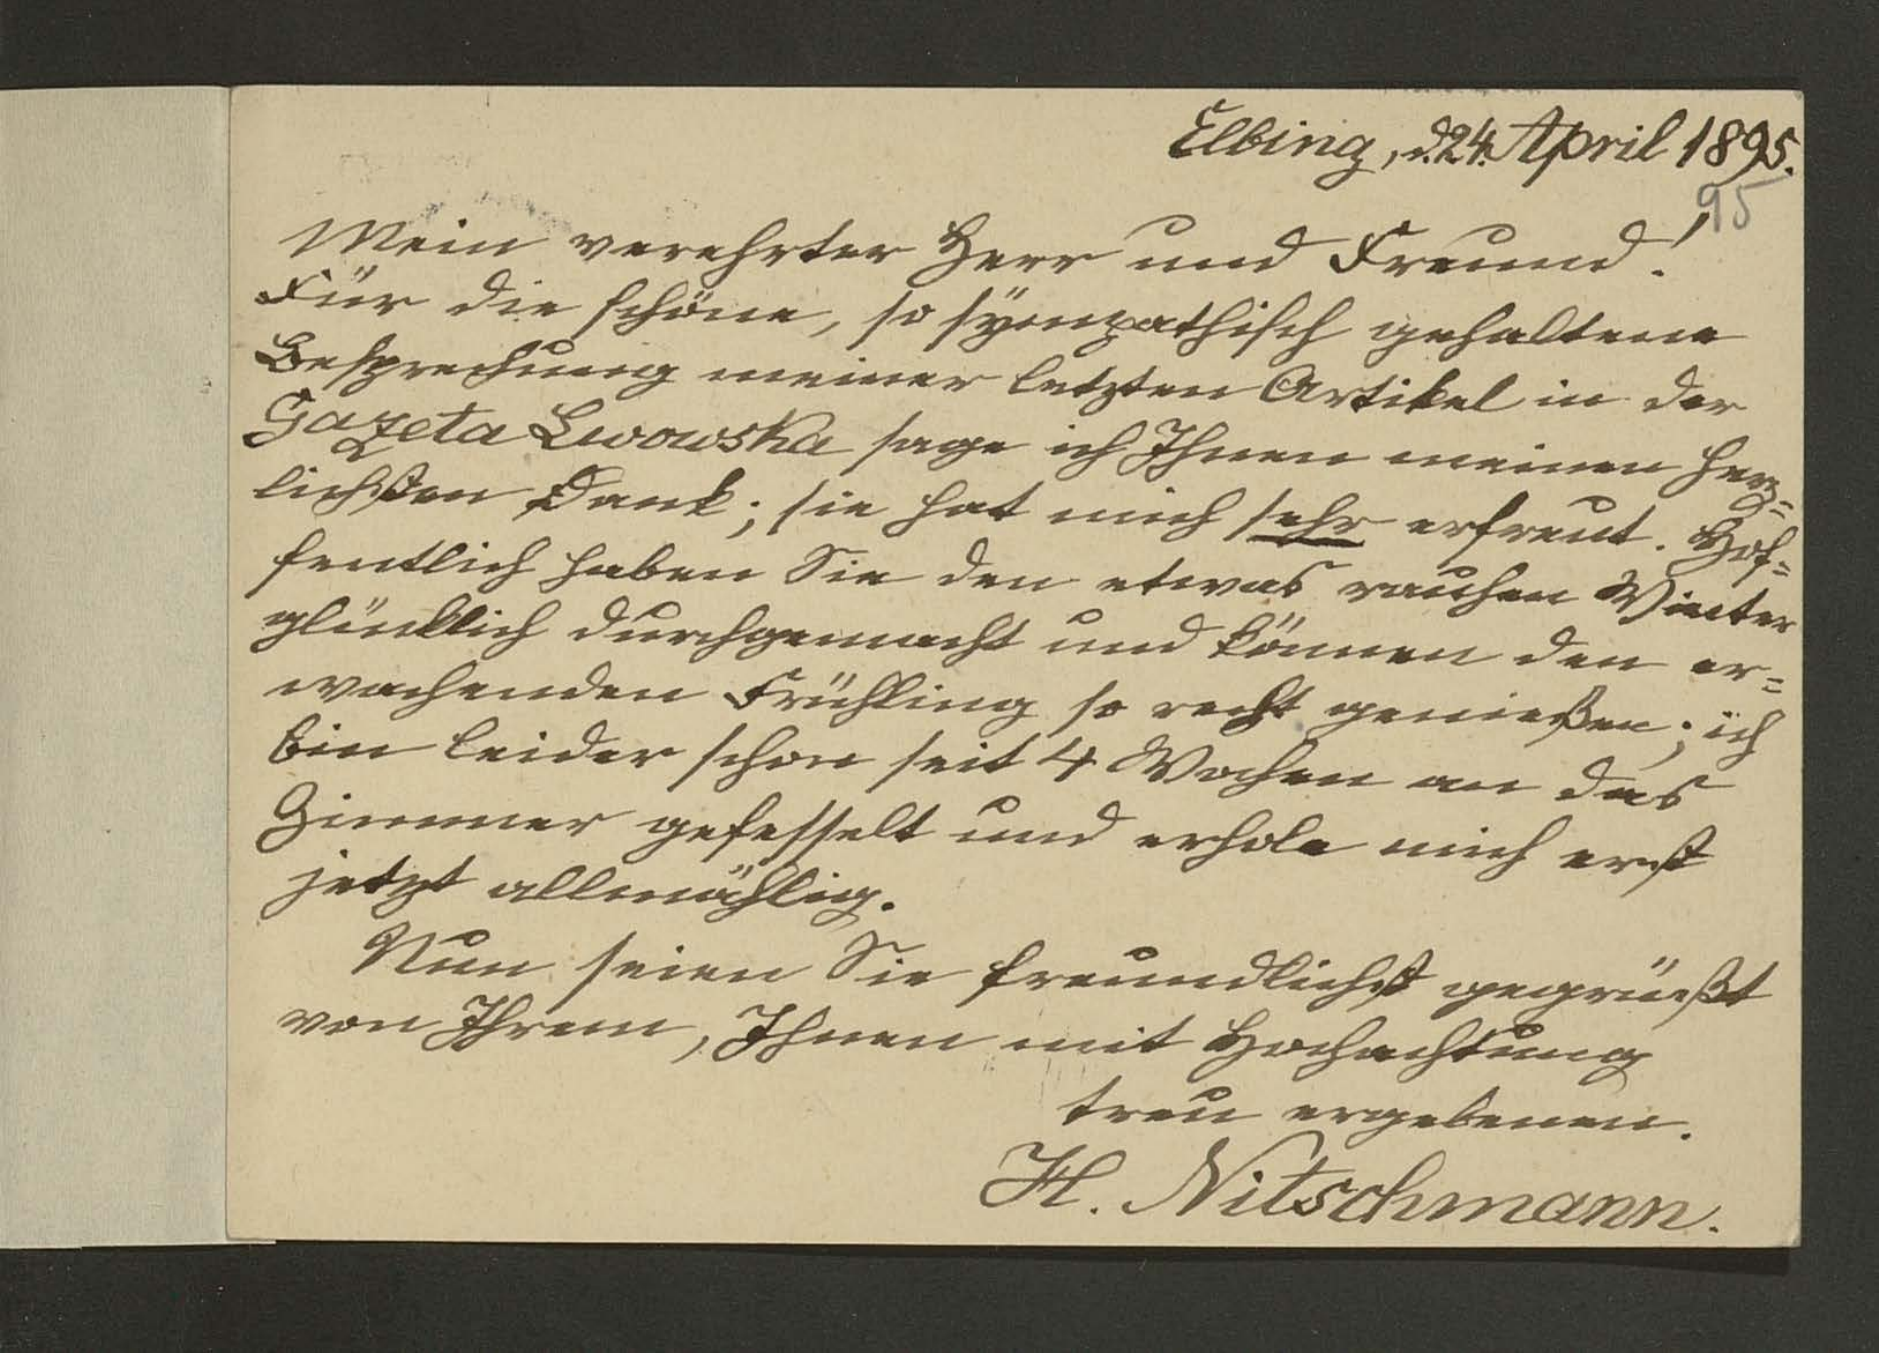 Elbing, d. 24. April 1895.
95
Mein verehrter Herr und Freund!
Für die schöne, so sÿmpathisch gehaltene
Besprechung meiner letzten Artikel in der
Gazeta Lwowska sage ich Ihnen meinen herz=
lichsten Dank; sie hat mich sehr erfreut. Hof=
fentlich haben Sie den etwas rauhen Winter
glücklich durchgemacht und können den er=
wachenden Frühling so recht genießen; ich
bin leider schon seit 4 Wochen an das
Zimmer gefesselt und erhole mich erst
jetzt allmählig.
Nun seien Sie freundlichst gegrüßt
von Ihrem, Ihnen mit Hochachtung
treu ergebenen.
H. Nitschmann.